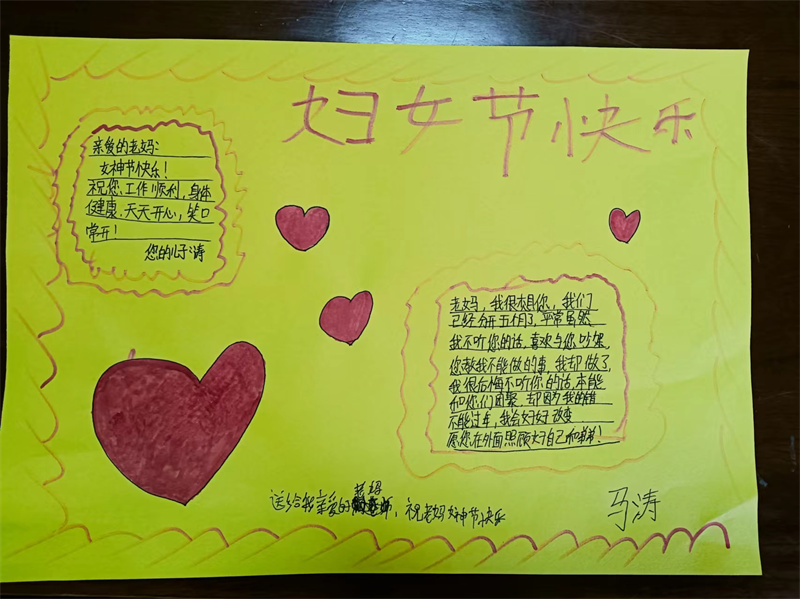 妇女节快乐
亲爱的老妈:
女神节快乐!
祝您:工作顺利,身体
健康、天天开心,笑口
常开!
您的儿子:涛
老妈,我很想你,我们
已经分开五个月了,平常虽然
我不听您的话,喜欢与您吵架,
您教我不能做的事,我却做了,
我很后悔不听你的话,本能
和您们团聚,却因为我的错
不能过年,我会好好改变
愿您在外面照顾好自己和爷爷!
送给我亲爱的老妈,祝老妈女神节快乐
马涛